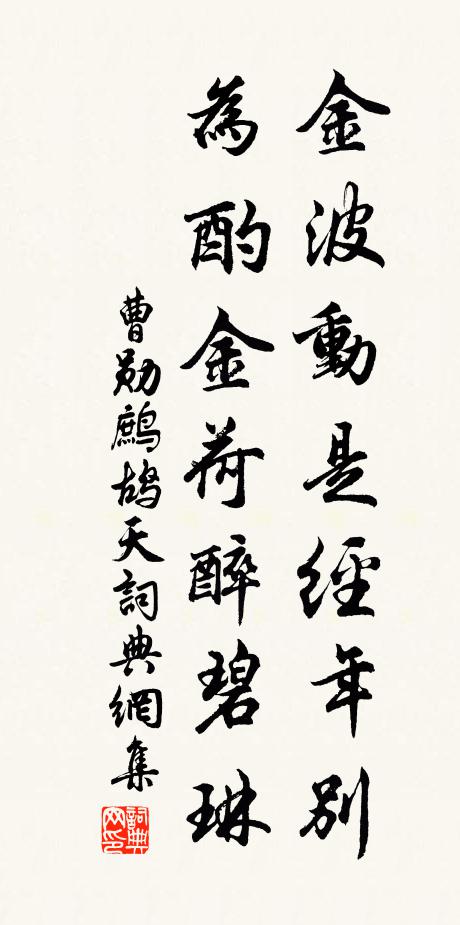 金波動是經年別
為酌金荷醉碧琳
曹勛鷓鴣天詞典網集
詞典網印